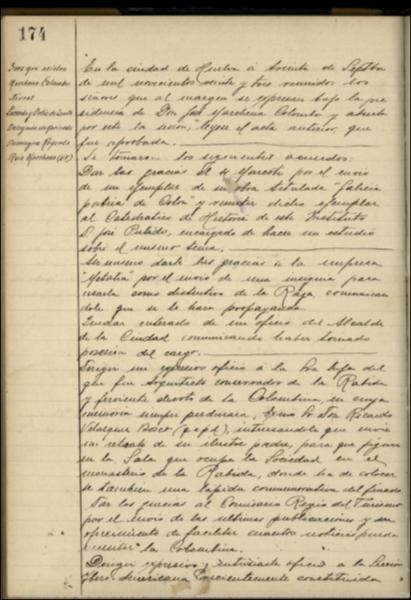 174
Sres que asisten
Marchena Colombo
Terceño
Ruiz Marchena (J.)
En la ciudad de Huelva á treinta de Septbre
de mil novecientos veinte y tres reunidos los
señores que al margen se expresan bajo la pre
sidencia de Don José Marchena Colombo y abierta
por este la sesión, leyose el acta anterior, que
fué aprobada.
Se tomaron los siguientes acuerdos:
Dar las gracias por el envio
de un ejemplar de su obra titulada "Galicia
patria de Colón" y remitir dicho ejemplar
al Catedratico de Historia de este Instituto
D. José Pulido, encargado de hacer un estudio
sobre el mismo tema.
Asi mismo darle las gracias á la empresa
por el envio de una insignia para
usarla como distintivo de la Raza, comunican
dole que se le hará propaganda.
Quedar enterado de un oficio del Alcalde
de la Ciudad comunicando haber tomado
posesión del cargo.
Dirigir un expresivo oficio á la Sra hija del
que fué Arquitecto conservador de la Rabida
y ferviente devoto de la Colombina, en cuya
memoria siempre perdurará, Don Ricardo
Velazquez Bosco (q.e.p.d), interesandole que envie
un retrato de su ilustre padre, para que figure
en la Sala que ocupa la Sociedad en el
monasterio de la Rabida, donde ha de colocar
se tambien una lapida conmemorativa del finado
Dar las gracias al Comisario Regio del Turismo
por el envio de las ultimas publicaciones y su
ofrecimiento de facilitar cuantas noticias pueda
la Colombina.
Dirigir expresivo y entusiasta oficio á la Sección
Ibero Americana recientemente constituida